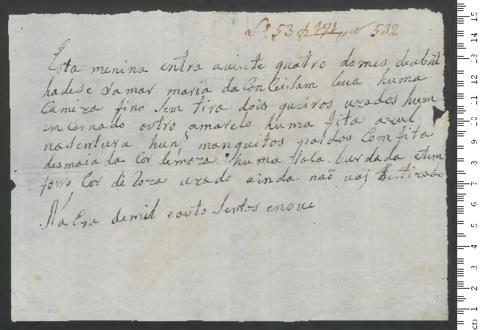 Lº 53 p 171 nº 532
Esta menina entra a uinte quatro do mes de abril
hadese xamar maria da Conseisam leua huma
Camiza fino sem tira dois queiros uzados hum
encarnado outro amarelo huma fita azul
na sentura huns manguitos paldos Com fita
desmaiada Cor de roza huma tiola burdada Com
forro Cor de Roza uzado ainda não uai Batizada
Na Era de mil e outo sentos e noue
cm 1 2 3 4 5 6 7 8 9 10 11 12 13 14 15